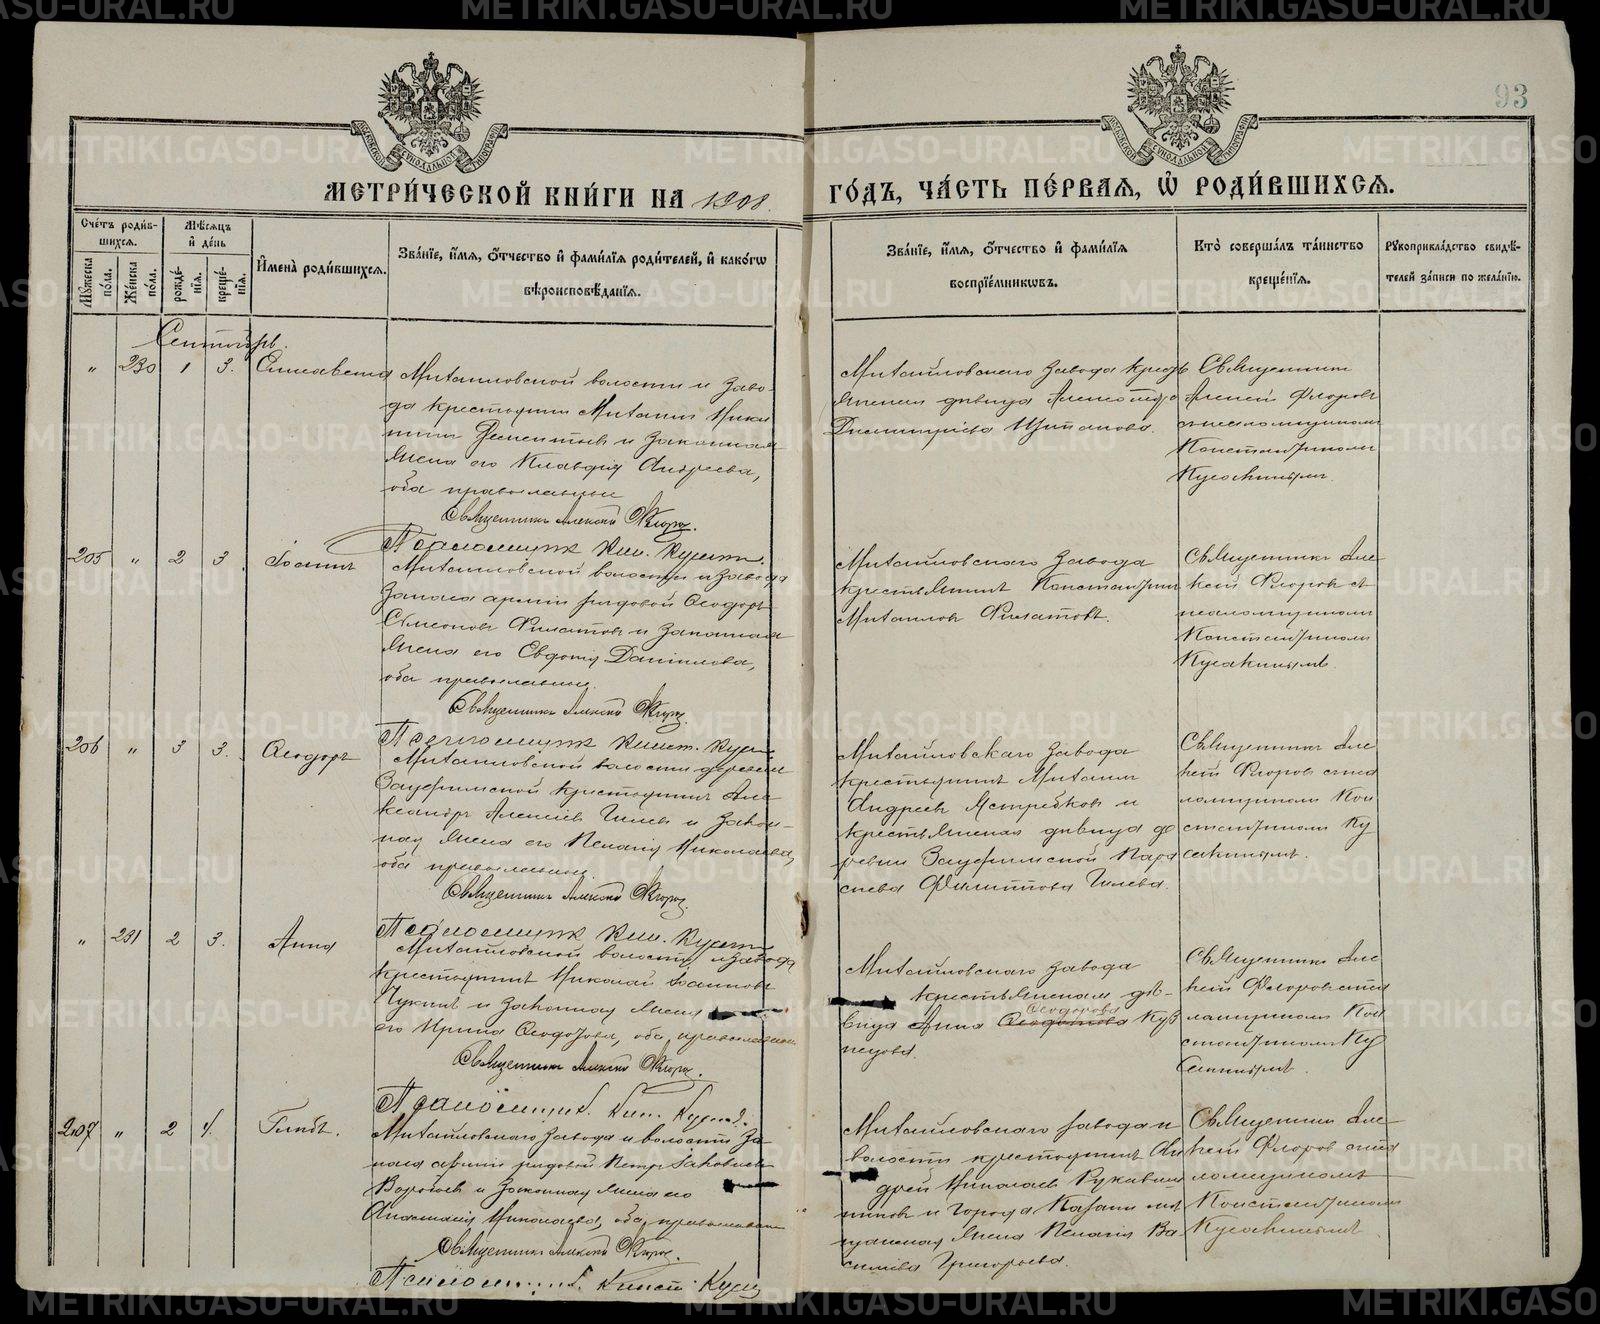 93
МЕТРИ́ЧЕСКОЙ КНИ́ГИ НА 1908
ГО́ДЪ, ЧА́СТЬ ПЕ́РВАЯ, Ѡ҆ РОДИ́ВШИХСЯ.
Сче́тъ роди́в-
шихся.
Му́жеска по́ла.
Же́нска по́ла.
Мѣ́сяцъ
и҆ де́нь
рожде́-
нїя.
креще́-
нїя.
И҆мена̀ роди́вшихся.
Зва́нїе, и҆́мя, ѻ҆́тчество и҆ фами́лїя роди́телей, и҆ како́гѡ
вѣроисповѣ́данїя.
Зва́нїе, и҆́мя, ѻ҆́тчество и҆ фами́лїя
воспрїе́мникѡвъ.
Кто̀ соверша́лъ та́инство
креще́нїя.
Рꙋкоприкла́дство свидѣ́-
телей за́писи по жела́нїю.
Сентябрь.
" 230 1 3. Елисавета
Михайловской волости и заво-
да крестьянин Михаил Ники
тин Дементьев и законная
жена его Клавдия Андреева,
оба православные
Священник Алексей Флоров.
Псаломщик Кон. Кусакин
Михайловскаго завода кресть
янская девица Александра
Димитриева Щипанова.
Священник
Алексей Флоров
с псаломщиком
Константином
Кусакиным.
205 " 2 3 Іоаннъ
Михайловской волости и завода
запаса армии рядовой Ѳеодоръ
Симеонов Филатов и законная
жена его Евдокия Даниилова,
оба православные.
Священник Алексей Флоров.
Псаломщик Конст. Кусакин
Михайловскаго завода
крестьянинъ Константин
Михаилов Филатовъ.
Священникъ Але-
ксей Флоров съ
псаломщиком
Константином
Кусакинымъ.
206 " 3 3. Ѳеодоръ
Михайловской волости деревни
Зауфимской крестьянинъ Але
ксандръ Алексеев Гилев и закон-
ная жена его Пелагия Николаева,
оба православные.
Священник Алексей Флоров.
Псаломщик Кон. Кусакин
Михайловскаго завода
крестьянинъ Михаил
Андреев Ястребков и
крестьянская девица де
ревни Зауфимской Пара
скева Филиппова Гилева.
Священникъ Але
ксей Флоров с пса
ломщиком Кон
стантином Ку
сакинымъ.
" 231 2 3. Анна
Михайловской волости и завода
крестьянинъ Николай Іоаннов
и законная жена
его Ирина Ѳеодорова, оба православные
Священник Алексей Флоров.
Псаломщик. Кон. Кусакин.
Михайловскаго завода
крестьянская де-
вица Анна Ѳеодорова Куз
нецова.
Священникъ Але
ксей Флоров с пса
ломщиком Кон
стантином Ку
сакинымъ.
207 " 2 4. Глебъ.
Михайловскаго завода и волости за-
паса армии рядовой Петр Іаковлев
Воробьев и законная жена его
Анастасия Николаева, оба православные
Священник Алексей Флоров.
Псаломщик. Конст. Кусак
Михайловскаго завода и
волости крестьянинъ Ан
дрей Николаев Рукавиш
ников и города Казани ме
щанская жена Пелагия Ва
сильева Григорьева.
Священник Але-
ксей Флоров с пса
ломщикомъ
Константином
Кусакинымъ.